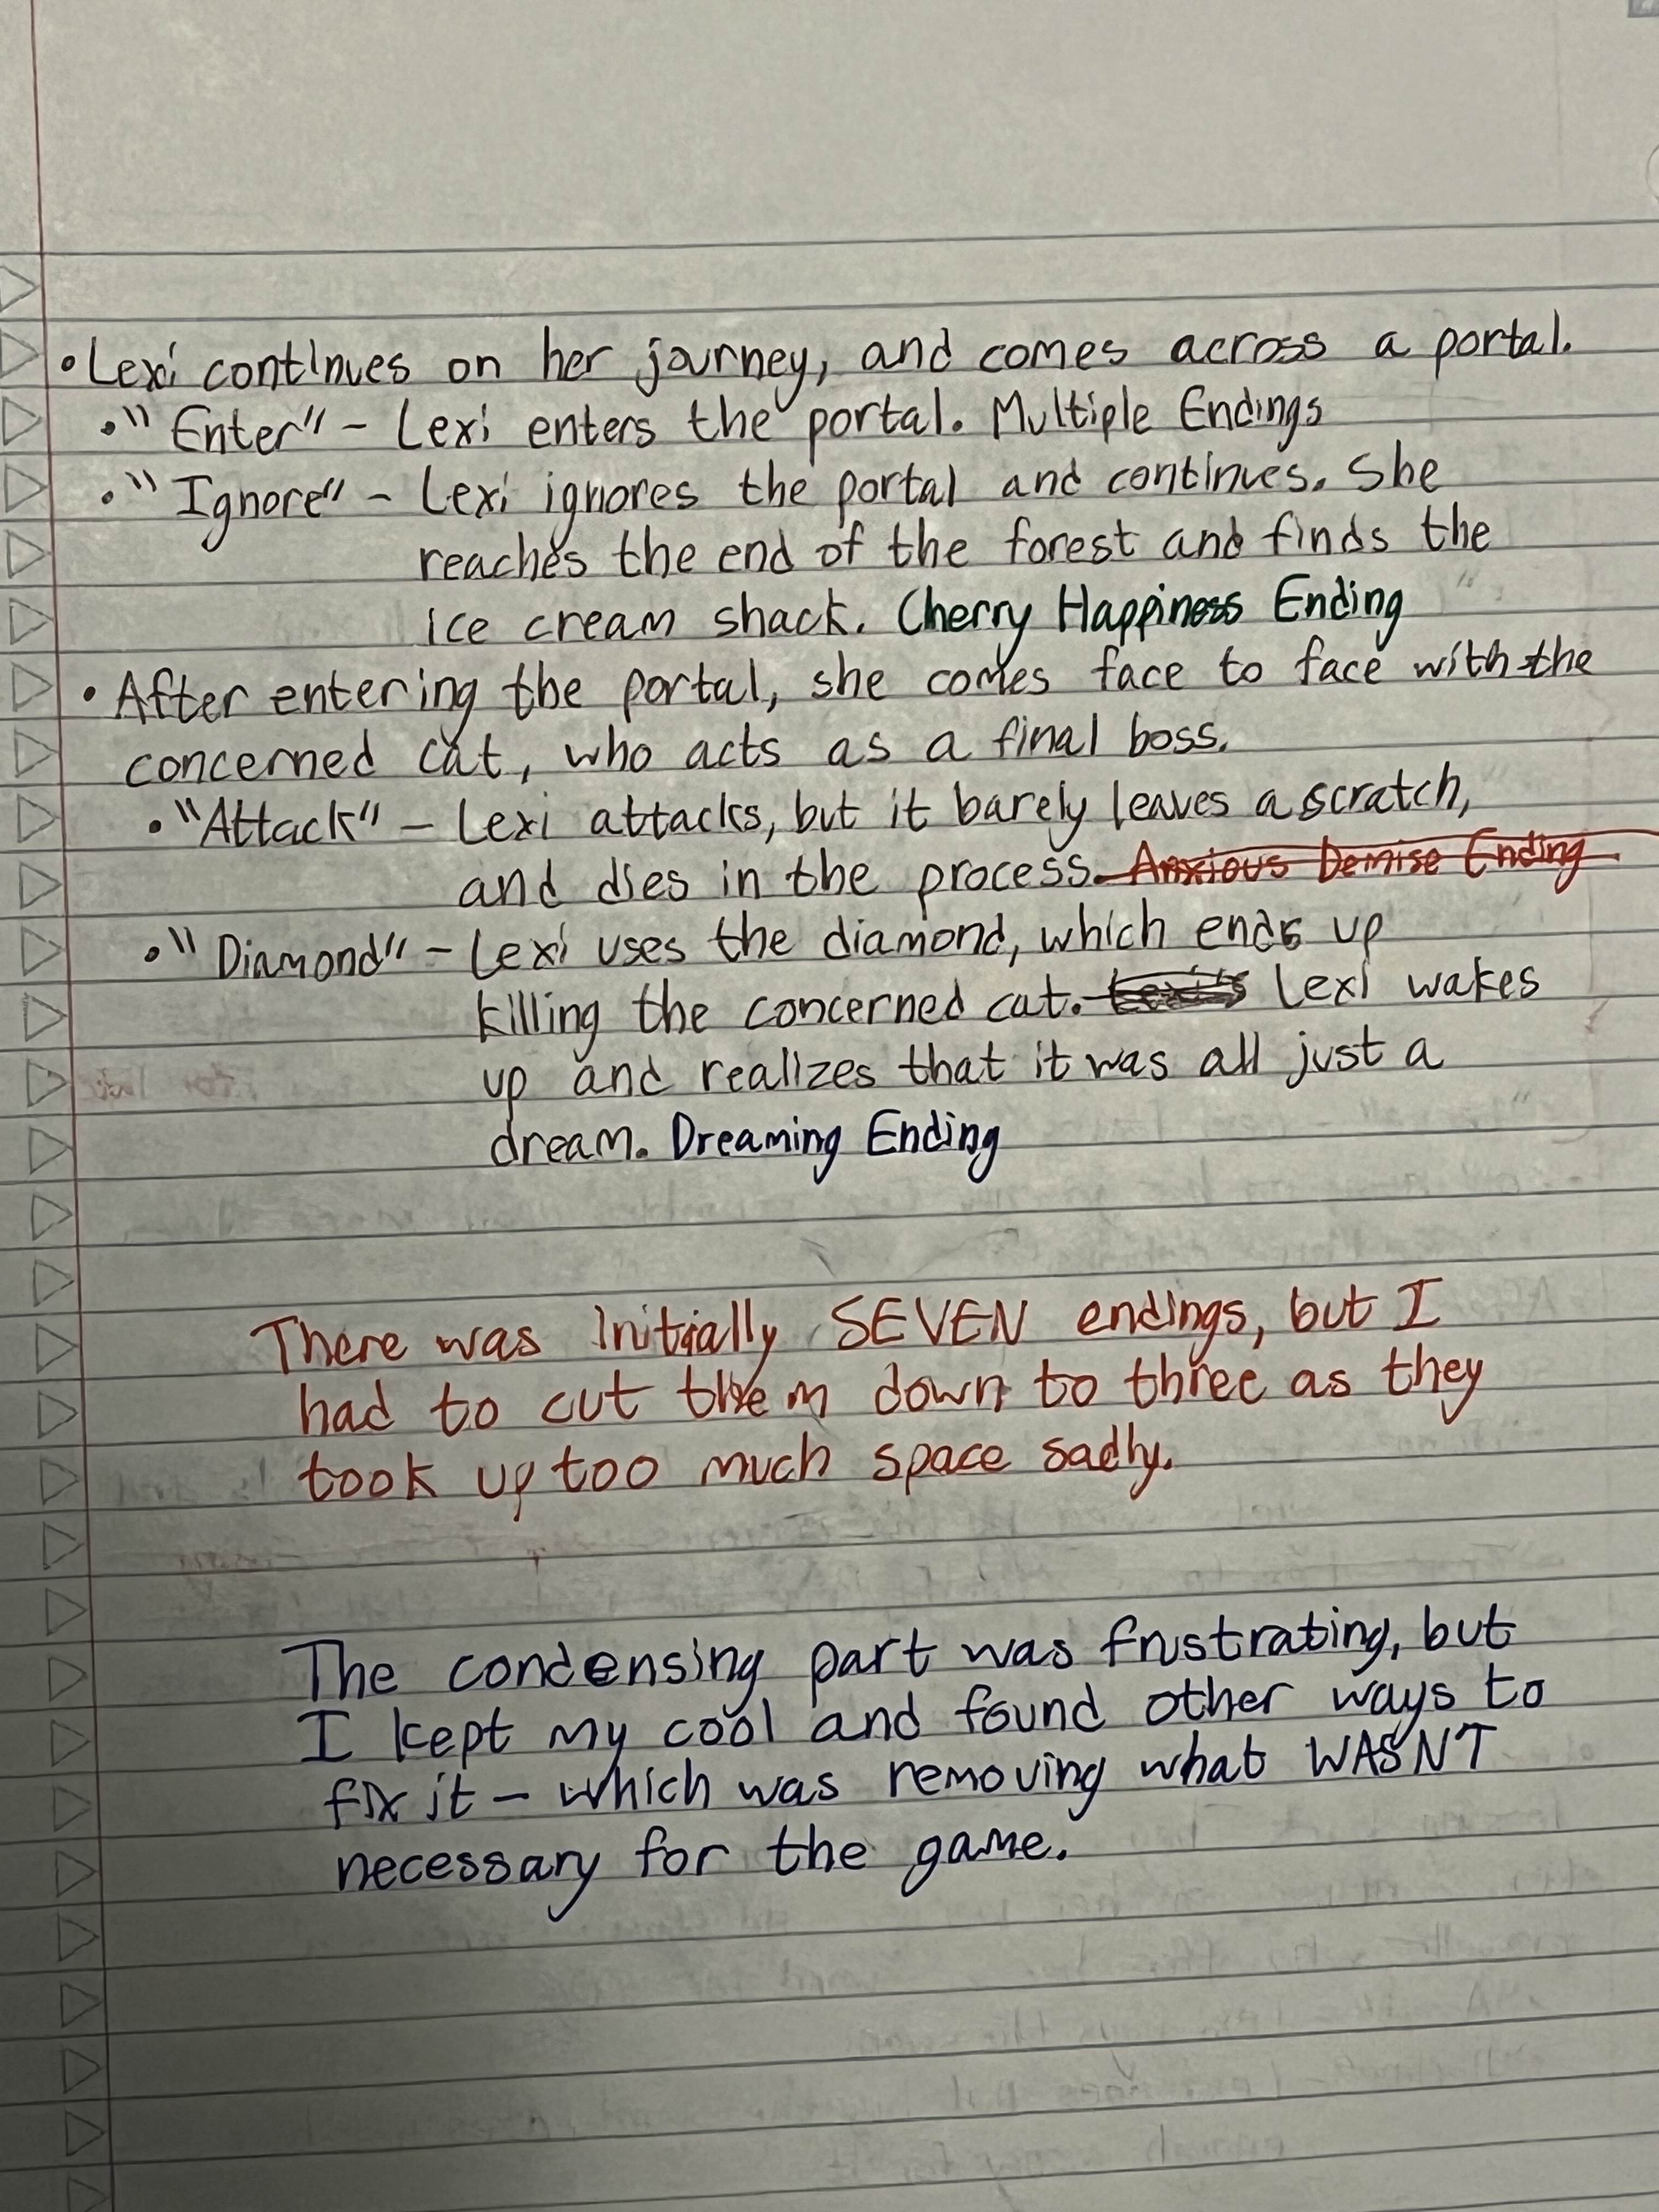 •Lexi continues on her journey, and comes across a portal.
•"Enter" - Lexi enters the portal. Multiple Endings
•"Ignore" - Lexi ignores the portal and continues. She
reaches the end of the forest and finds the
ice cream shack. Cherry Happiness Ending
•After entering the portal, she comes face to face with the
concerned cat, who acts as a final boss.
•"Attack" - Lexi attacks, but it barely leaves a scratch,
and dies in the process. Anxious Demise Ending
•"Diamond" - Lexi uses the diamond, which ends up
killing the concerned cat. Lexi wakes
up and realizes that it was all just a
dream. Dreaming Ending
There was initially SEVEN endings, but I
had to cut them down to three as they
took up too much space sadly.
The condensing part was frustrating, but
I kept my cool and found other ways to
fix it - which was removing what WASNT
necessary for the game.